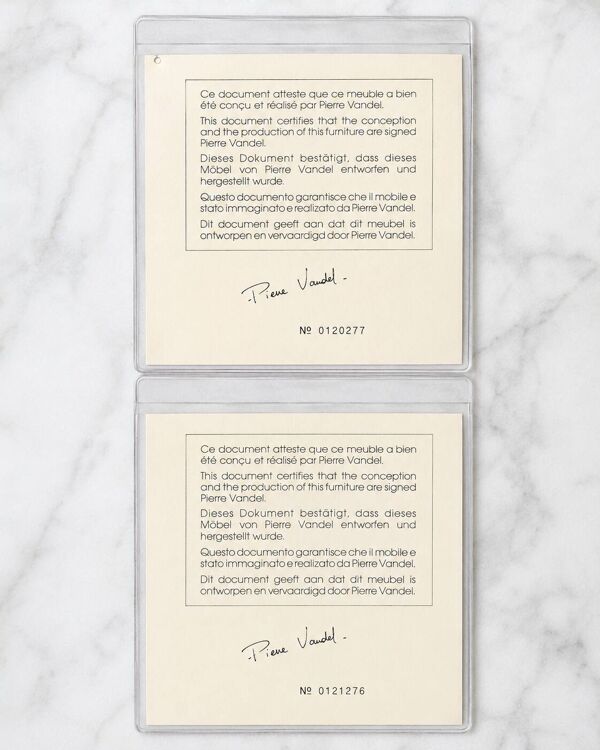 Ce document atteste que ce meuble a bien
été conçu et réalisé par Pierre Vandel.
This document certifies that the conception
and the production of this furniture are signed
Pierre Vandel.
Dieses Dokument bestätigt, dass dieses
Möbel von Pierre Vandel entworfen und
hergestellt wurde.
Questo documento garantisce che il mobile e
stato immaginato e realizato da Pierre Vandel.
Dit document geeft aan dat dit meubel is
ontworpen en vervaardigd door Pierre Vandel.
-Pierre Vandel-
Nº 0120277
Ce document atteste que ce meuble a bien
été conçu et réalisé par Pierre Vandel.
This document certifies that the conception
and the production of this furniture are signed
Pierre Vandel.
Dieses Dokument bestätigt, dass dieses
Möbel von Pierre Vandel entworfen und
hergestellt wurde.
Questo documento garantisce che il mobile e
stato immaginato e realizato da Pierre Vandel.
Dit document geeft aan dat dit meubel is
ontworpen en vervaardigd door Pierre Vandel.
-Pierre Vandel-
Nº 0121276